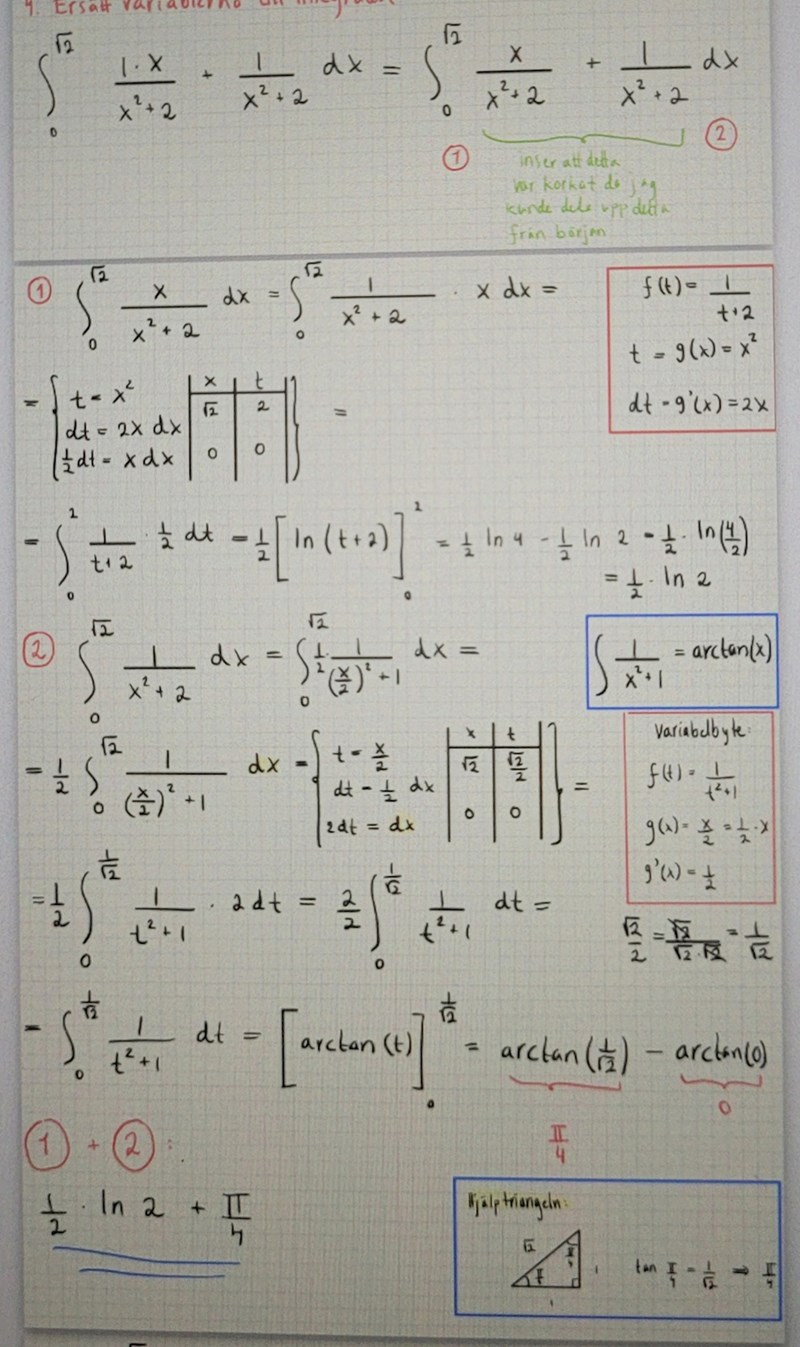 4. Ersätt variablerna till integralen
∫₀^√2 1·x/(x²+2) + 1/(x²+2) dx = ∫₀^√2 x/(x²+2) + 1/(x²+2) dx
① ②
inser att detta
var korkat då jag
kunde dela upp detta
från början
① ∫₀^√2 x/(x²+2) dx = ∫₀^√2 1/(x²+2) · x dx =
f(t) = 1/(t+2)
t = g(x) = x²
dt = g'(x) = 2x
= { t = x² | x | t |
dt = 2x dx | √2 | 2 |
½dt = x dx | 0 | 0 | } =
= ∫₀² 1/(t+2) · ½ dt = ½ [ln(t+2)]₀² = ½ ln 4 - ½ ln 2 = ½ · ln(4/2)
= ½ · ln 2
② ∫₀^√2 1/(x²+2) dx = ∫₀^√2 ½ · 1/((x/2)²+1) dx =
∫ 1/(x²+1) = arctan(x)
= ½ ∫₀^√2 1/((x/2)²+1) dx = { t = x/2 | x | t |
dt = ½ dx | √2 | √2/2 |
2dt = dx | 0 | 0 | } =
Variabelbyte:
f(t) = 1/(t²+1)
g(x) = x/2 = ½·x
g'(x) = ½
= ½ ∫₀^(1/√2) 1/(t²+1) · 2dt = 2/2 ∫₀^(1/√2) 1/(t²+1) dt =
√2/2 = √2/(√2·√2) = 1/√2
= ∫₀^(1/√2) 1/(t²+1) dt = [arctan(t)]₀^(1/√2) = arctan(1/√2) - arctan(0)
π/4 0
① + ② :
½ · ln 2 + π/4
Hjälptriangeln:
√2 π/4 π/4 1 1
tan π/4 = 1/√2 ⇒ π/4